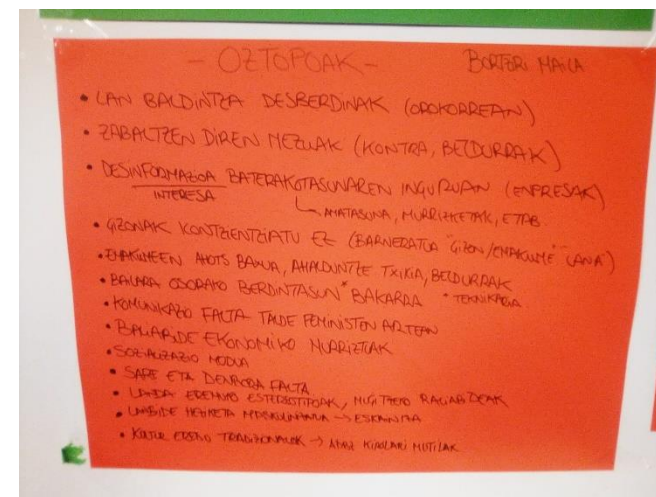 - OZTOPOAK - BORTZIRI MAILA
• LAN BALDINTZA DESBERDINAK (OROKORREAN)
• ZABALTZEN DIREN MEZUAK (KONTRA, BELDURRAK)
• DESINFORMAZIOA BATERAKOTASUNAREN INGURUAN (ENPRESAK)
INTERESA
AMATASUNA, MURRIZKETAK, ETAB.
• GIZONAK KONTZIENTZIATU EZ (BARNERATUA "GIZON/EMAKUME" LANA)
• EMAKUMEEN AHOTS BAXUA, AHALDUNTZE TXIKIA, BELDURRAK
• BAILARA OSORAKO BERDINTASUN* BAKARRA * TEKNIKARIA
• KOMUNIKAZIO FALTA TALDE FEMINISTEN ARTEAN
• BALIABIDE EKONOMIKO MURRIZTUAK
• SOZIALIZAZIO MODUA
• SARE ETA DENBORA FALTA
• EREMUKO ESTEREOTIPOAK, MUGITZEKO BALIABIDEAK
• HEZIKETA → ESKAINTZA
• KULTUR EREDU TRADIZIONALAK → MUTILAK